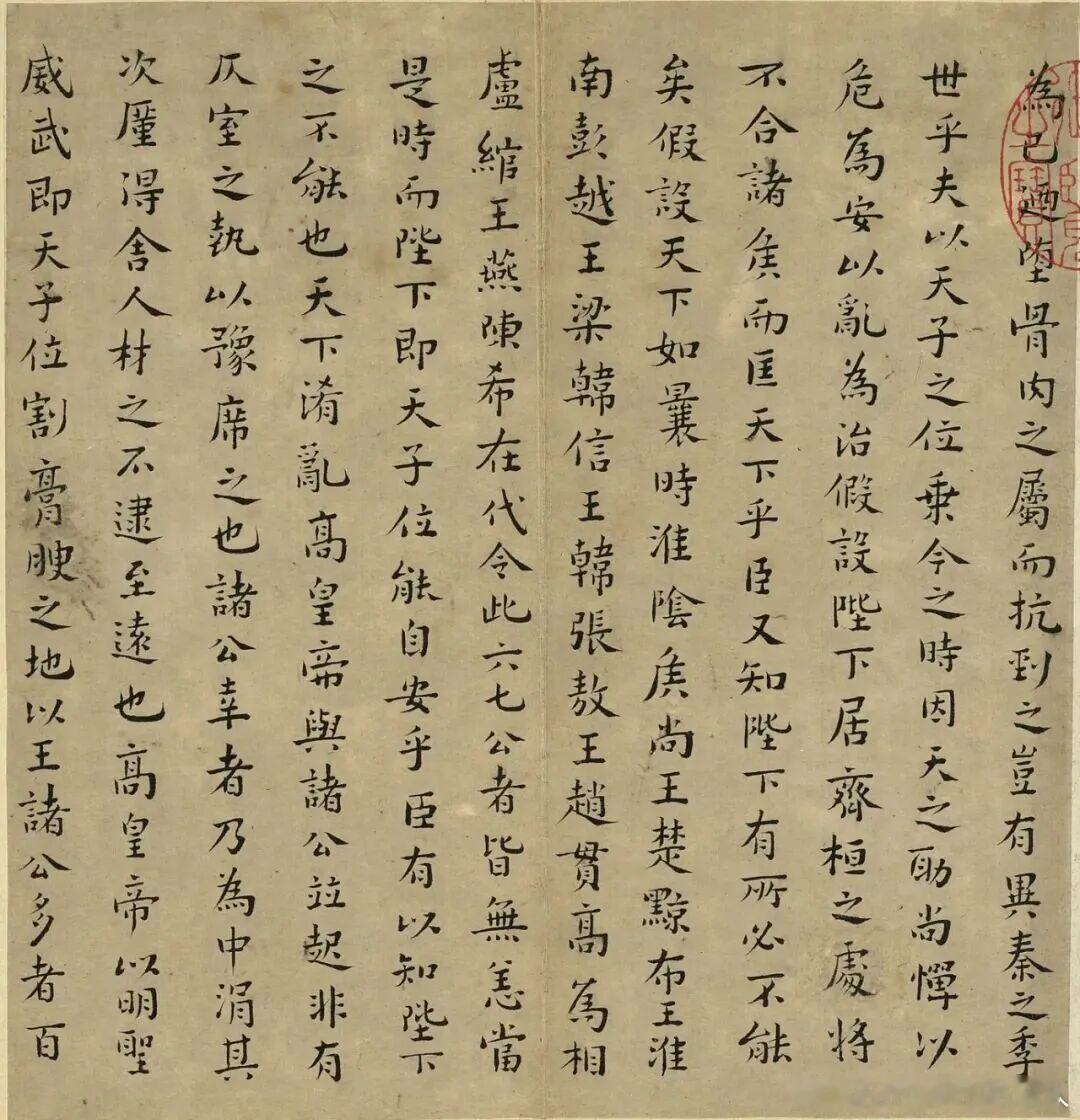 為已迺墮骨肉之屬而抗剄之豈有異秦之季
世乎夫以天子之位乗今之時因天之助尚憚以
危為安以亂為治假設陛下居齊桓之處將
不合諸侯而匡天下乎臣又知陛下有所必不能
矣假設天下如曩時淮陰侯尚王楚黥布王淮
南彭越王梁韓信王韓張敖王趙貫高為相
盧綰王燕陳希在代令此六七公者皆無恙當
是時而陛下即天子位能自安乎臣有以知陛下
之不能也天下淆亂高皇帝與諸公竝起非有
仄室之執以豫席之也諸公幸者乃為中涓其
次廑得舍人材之不逮至遠也高皇帝以明聖
威武即天子位割膏腴之地以王諸公多者百